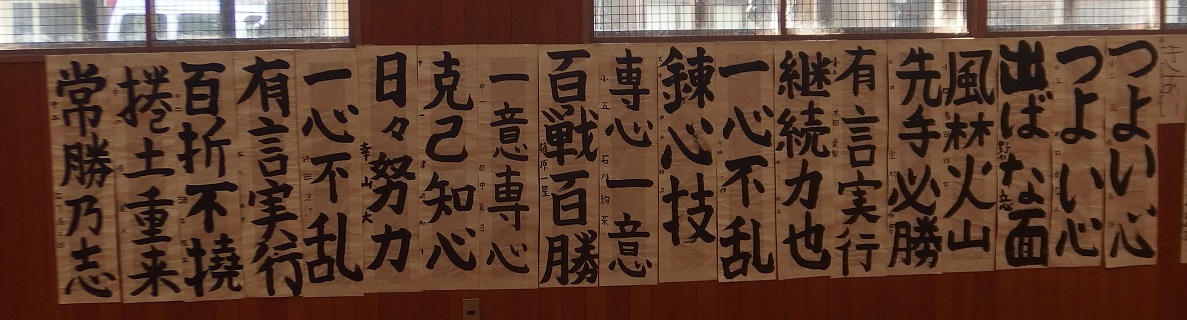 つよい心
つよい心
出ばな面
風林火山
先手必勝
有言実行
継続力也
一心不乱
錬心技
専心一意
百戦百勝
一意専心
克己知心
日々努力
一心不乱
有言実行
百折不撓
捲土重来
常勝乃志